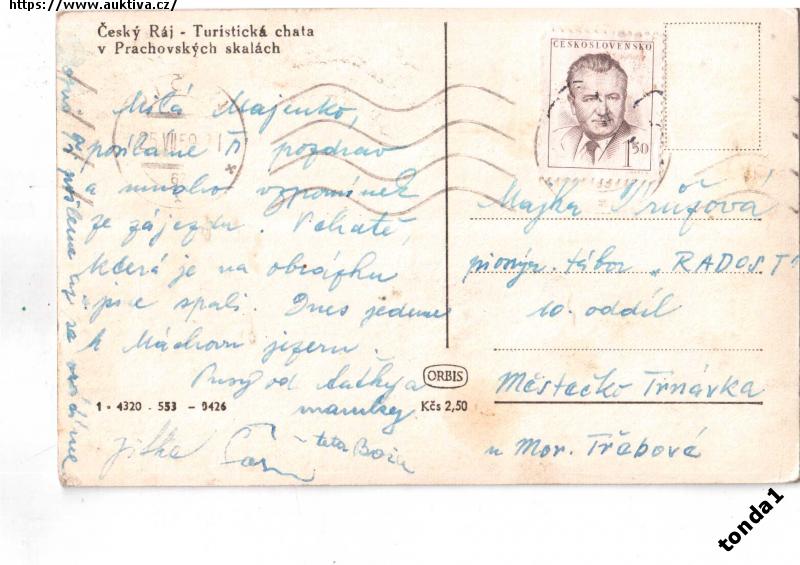 https://www.auktiva.cz/
Český Ráj - Turistická chata
v Prachovských skalách
ČESKOSLOVENSKO
1,50
Milá Majenko,
posíláme Ti pozdrav
a mnoho vzpomínek
ze zájezdu. V chatě,
která je na obrázku
jsme spali. Dnes jedeme
k Máchovu jezeru.
Pusy od
maminky
teta Boža
Jitka
až se vrátíme
ORBIS
Kčs 2,50
1 - 4320 - 553 - 9426
Majka
pionýr. tábor "RADOST"
10. oddíl
Městečko Trnávka
u Mor. Třebová
tonda1